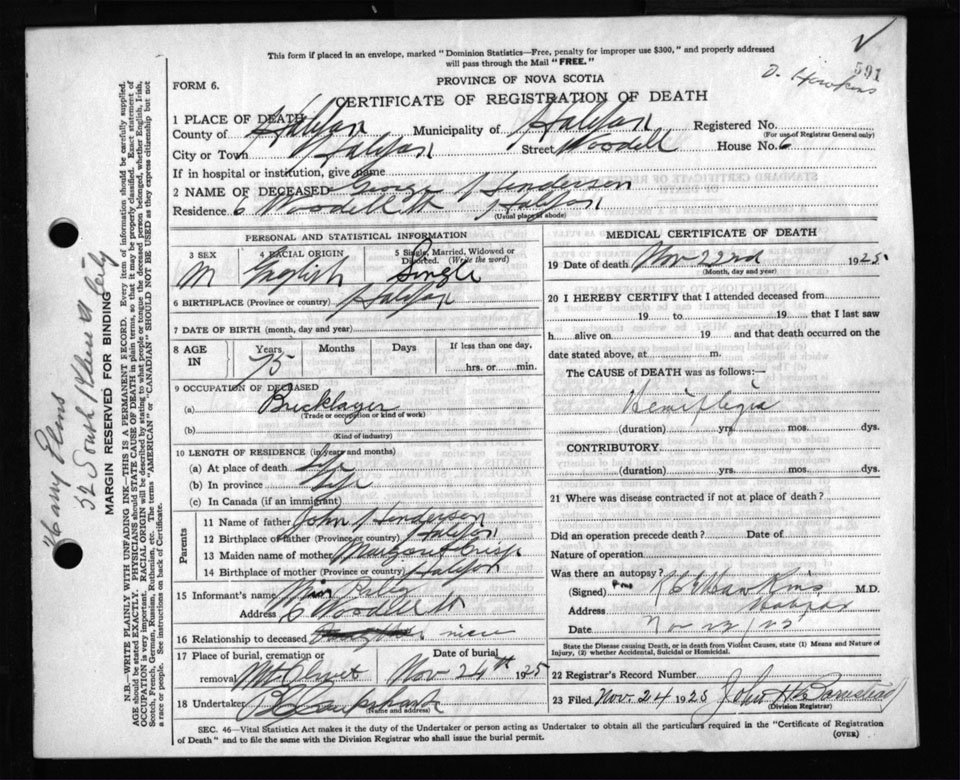 This form if placed in an envelope, marked "Dominion Statistics—Free, penalty for improper use $300," and properly addressed
will pass through the Mail "FREE."
591
D. Hawkins
FORM 6.
PROVINCE OF NOVA SCOTIA
CERTIFICATE OF REGISTRATION OF DEATH
1 PLACE OF DEATH
County of Halifax Municipality of Halifax Registered No.
(For use of Registrar General only)
City or Town Halifax Street Woodill House No. 6
If in hospital or institution, give name
2 NAME OF DECEASED George Henderson
Residence 6 Woodill St Halifax
(Usual place of abode)
PERSONAL AND STATISTICAL INFORMATION
3 SEX 4 RACIAL ORIGIN 5 Single, Married, Widowed or Divorced. (Write the word)
M English Single
6 BIRTHPLACE (Province or country) Halifax
7 DATE OF BIRTH (month, day and year)
8 AGE IN Years Months Days If less than one day,
75 hrs. or min.
9 OCCUPATION OF DECEASED
(a) Bricklayer
(Trade or occupation or kind of work)
(b)
(Kind of industry)
10 LENGTH OF RESIDENCE (in years and months)
(a) At place of death Life
(b) In province Life
(c) In Canada (if an immigrant)
Parents
11 Name of father John Henderson
12 Birthplace of father (Province or country) Halifax
13 Maiden name of mother Margaret Crisp
14 Birthplace of mother (Province or country) Halifax
15 Informant's name
Address 6 Woodill St
16 Relationship to deceased niece
17 Place of burial, cremation or removal Date of burial
Mt Olivet Nov 24th 1925
18 Undertaker
(Name and address)
MEDICAL CERTIFICATE OF DEATH
19 Date of death Nov 22nd 1925
(Month, day and year)
20 I HEREBY CERTIFY that I attended deceased from
19 to 19 that I last saw
h alive on 19 and that death occurred on the
date stated above, at m.
The CAUSE of DEATH was as follows:—
Hemiplegia
(duration) yrs. mos. dys.
CONTRIBUTORY.
(duration) yrs. mos. dys.
21 Where was disease contracted if not at place of death?
Did an operation precede death? Date of
Nature of operation
Was there an autopsy?
(Signed) Hawkins M.D.
Address Halifax
Date Nov 23/25
State the Disease causing Death, or in death from Violent Causes, state (1) Means and Nature of
Injury, (2) whether Accidental, Suicidal or Homicidal.
22 Registrar's Record Number
23 Filed Nov. 24 1925 John H. Barnstead
(Division Registrar)
SEC. 46—Vital Statistics Act makes it the duty of the Undertaker or person acting as Undertaker to obtain all the particulars required in the "Certificate of Registration
of Death" and to file the same with the Division Registrar who shall issue the burial permit.
(OVER)
52 South Kline St City
MARGIN RESERVED FOR BINDING
N.B.—WRITE PLAINLY WITH UNFADING INK—THIS IS A PERMANENT RECORD. Every item of information should be carefully supplied.
AGE should be stated EXACTLY. PHYSICIANS should STATE CAUSE OF DEATH in plain terms, so that it may be properly classified. Exact statement of
OCCUPATION is very important. RACIAL ORIGIN will be described by stating to what people or tongue the deceased person belonged, whether English, Irish,
Scotch, French, German, Russian, Ruthenian, etc. The terms "AMERICAN" or "CANADIAN" SHOULD NOT BE USED as they express citizenship but not
a race or people. See instructions on back of Certificate.